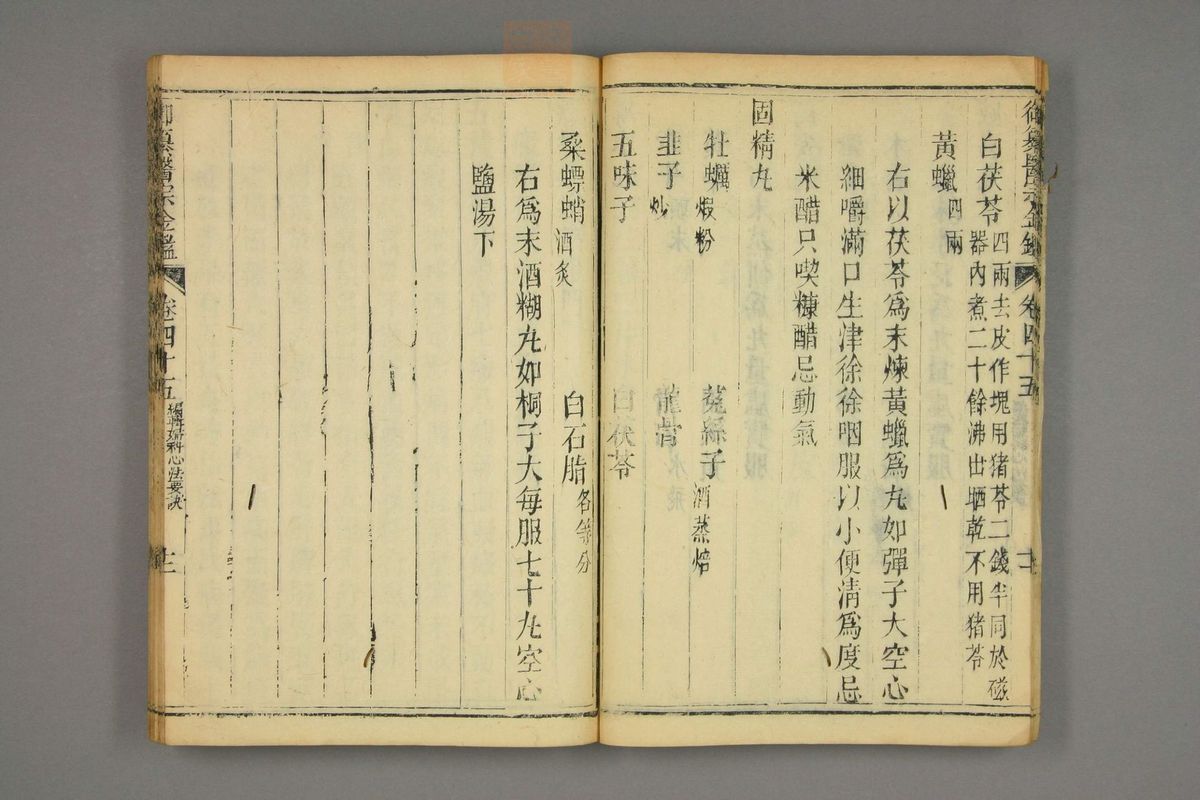 御纂醫宗金鑑 卷四十五
白茯苓 四兩去皮作塊用猪苓二錢半同於磁
器內煮二十餘沸出晒乾不用猪苓
黃蠟 四兩
右以茯苓爲末煉黃蠟爲丸如彈子大空心
細嚼滿口生津徐徐咽服以小便淸爲度忌
米醋只喫糠醋忌動氣
固精丸
牡蠣 煆粉 菟絲子 酒蒸焙
韭子 炒 龍骨
五味子 白茯苓
桑螵蛸 酒炙 白石脂 各等分
右爲末酒糊丸如梧子大每服七十丸空心
鹽湯下
御纂醫宗金鑑 卷四十五 編輯婦科心法要訣